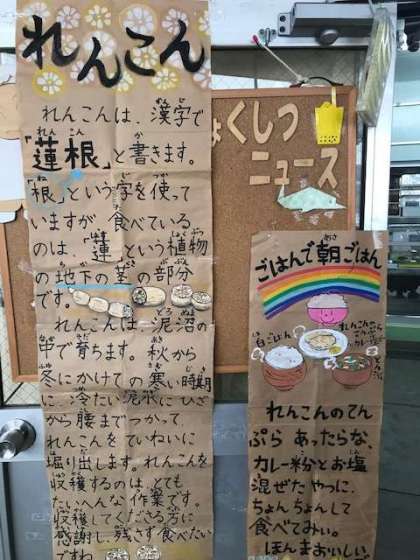 れんこん
れんこんは、漢字で
「蓮根」と書きます。
「根」という字を使って
いますが、食べている
のは、「蓮」という植物
の地下の茎の部分
です。
れんこんは泥沼の
中で育ちます。秋から
冬にかけての寒い時期
に、冷たい泥水にひざ
から腰までつかって、
れんこんをていねいに
掘り出します。れんこんを
収穫するのは、とても
たいへんな作業です。
収穫してくださる方に
感謝し、残さず食べたい
ですね
ょくしつ
ニュース
ごはんで朝ごはん
白ごはん
れんこんのてん
ぷら あったらな、
カレー粉とお塩
混ぜたやつに、
ちょんちょんして
食べてみぃ。
ほんまおいしい